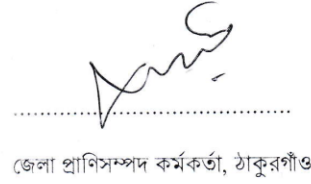 জেলা প্রাণিসম্পদ কর্মকর্তা, ঠাকুরগাঁও